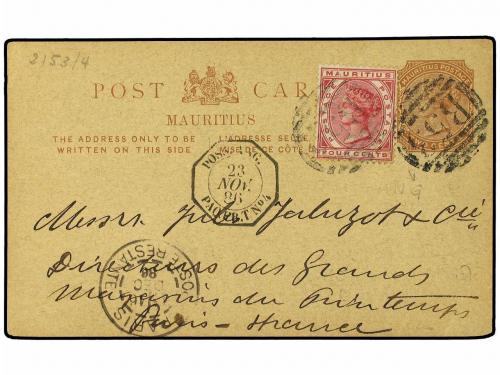 2153/4
POST CARD
MAURITIUS
THE ADDRESS ONLY TO BE
WRITTEN ON THIS SIDE
L'ADRESSE SEULE
MISE DE CE CÔTÉ
MAURITIUS
POSTAGE
FOUR CENTS
MAURITIUS POSTAGE
POSS. ANG.
23
NOV.
86
PAQ. FR. T No 4
Messrs Jules Jaluzot & Cie
Directeurs des Grands
Magasins du Printemps
Paris - France
PARIS
DEC
86
RESTANTE